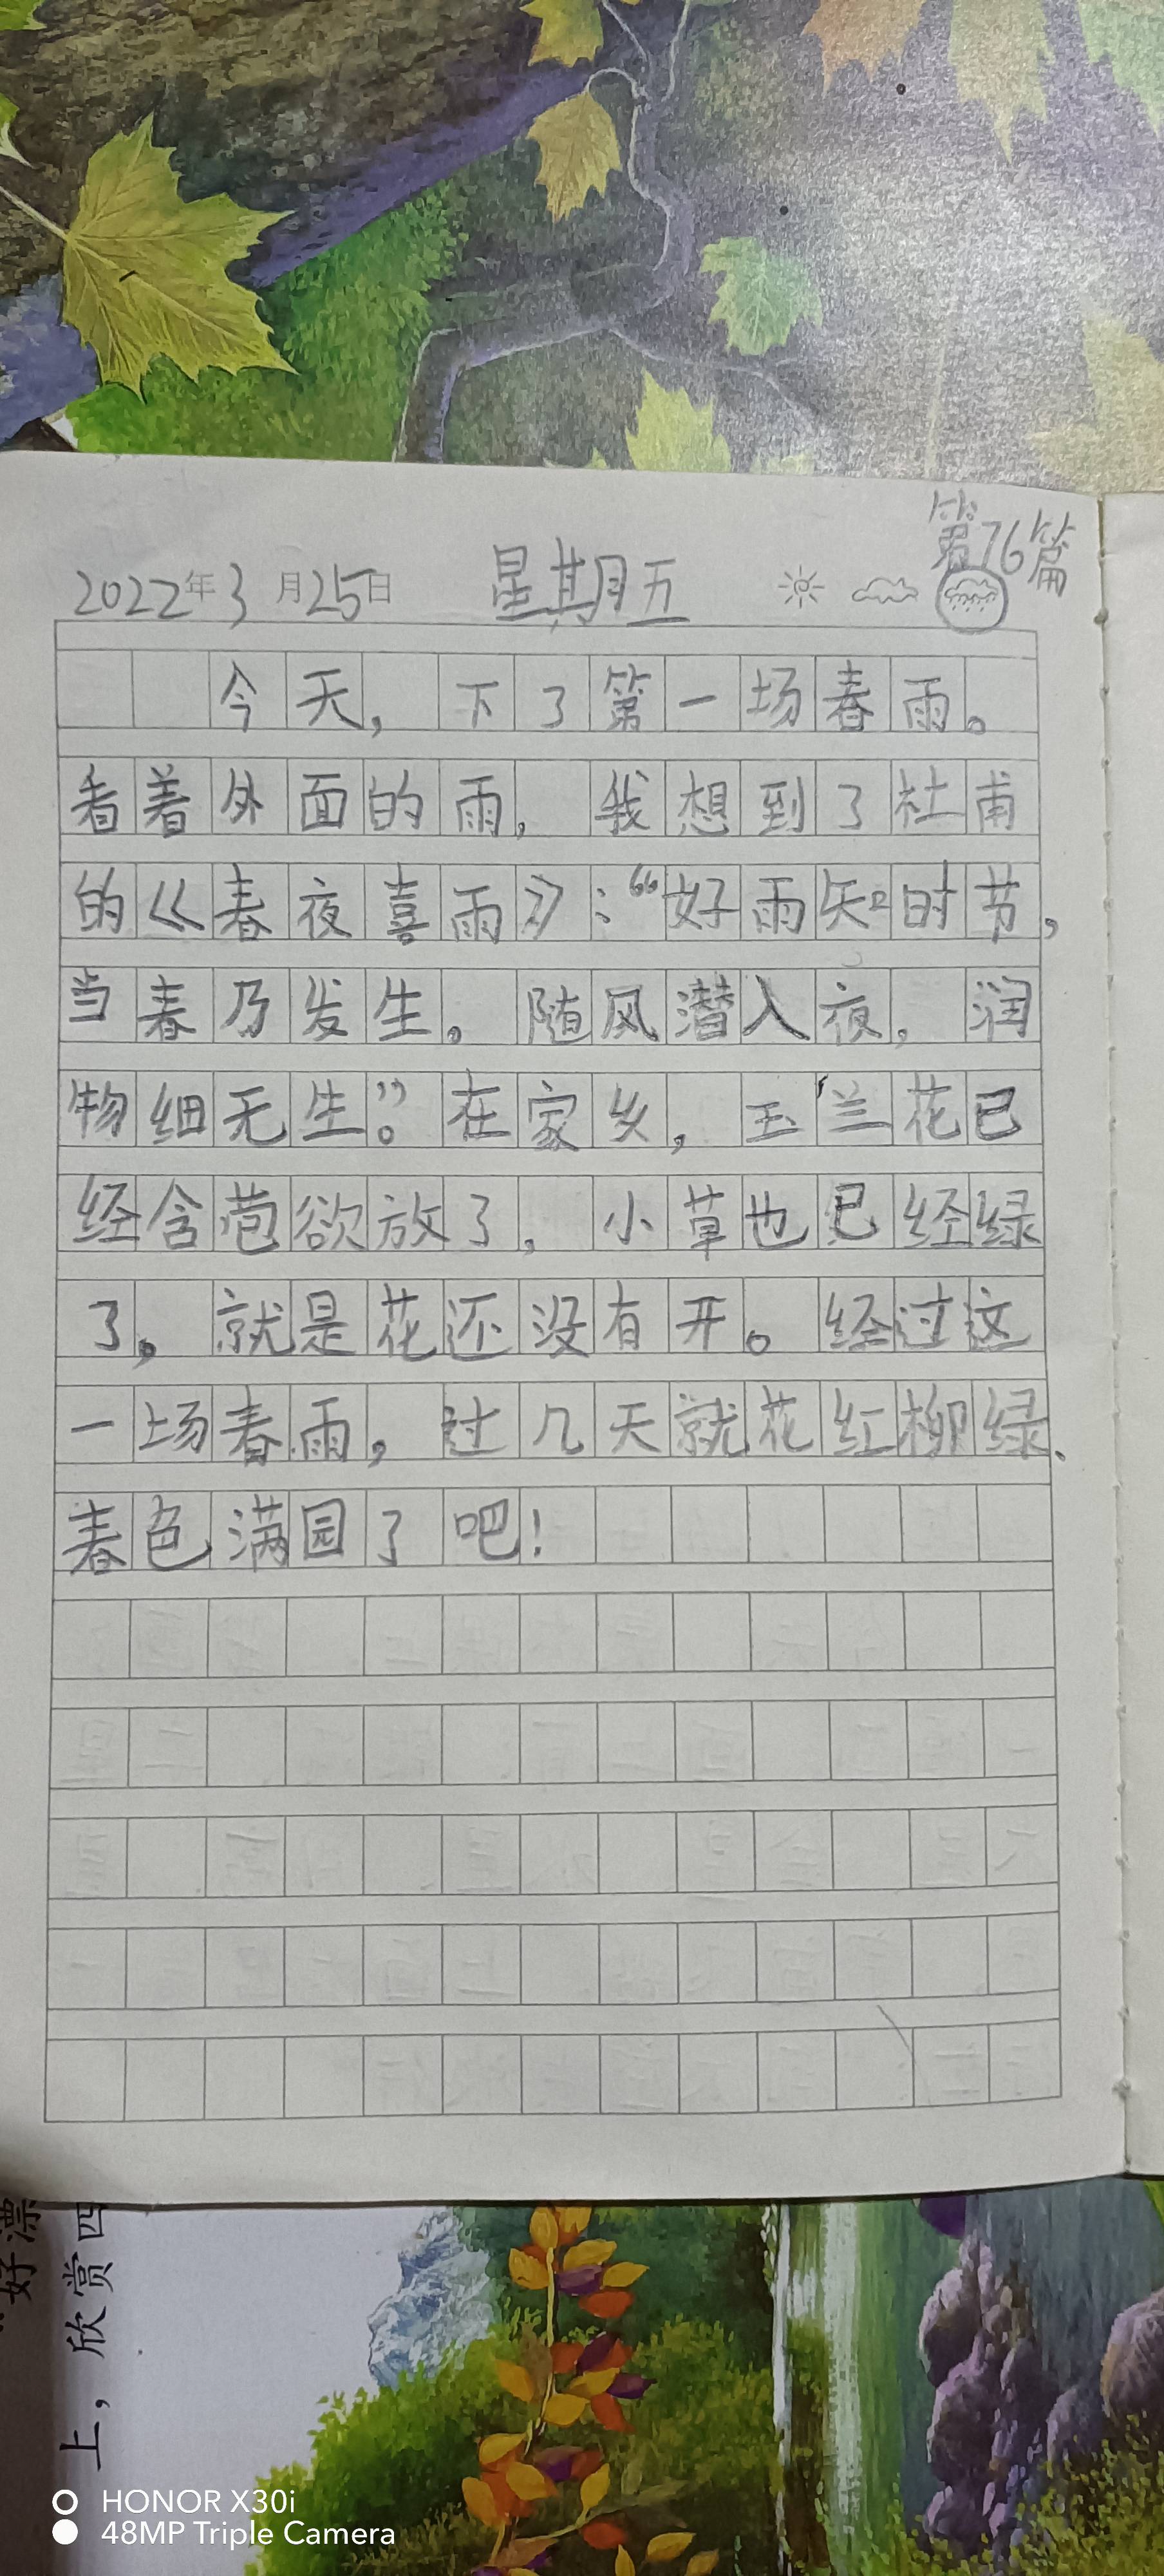 第76篇
2022年3月25日 星期五
今天，下了第一场春雨。
看着外面的雨，我想到了杜甫
的《春夜喜雨》：“好雨知时节，
当春乃发生。随风潜入夜，润
物细无生”。在家乡，玉兰花已
经含苞欲放了，小草也已经绿
了，就是花还没有开。经过这
一场春雨，过几天就花红柳绿、
春色满园了吧！
“好漂
上，欣赏四
HONOR X30i
48MP Triple Camera